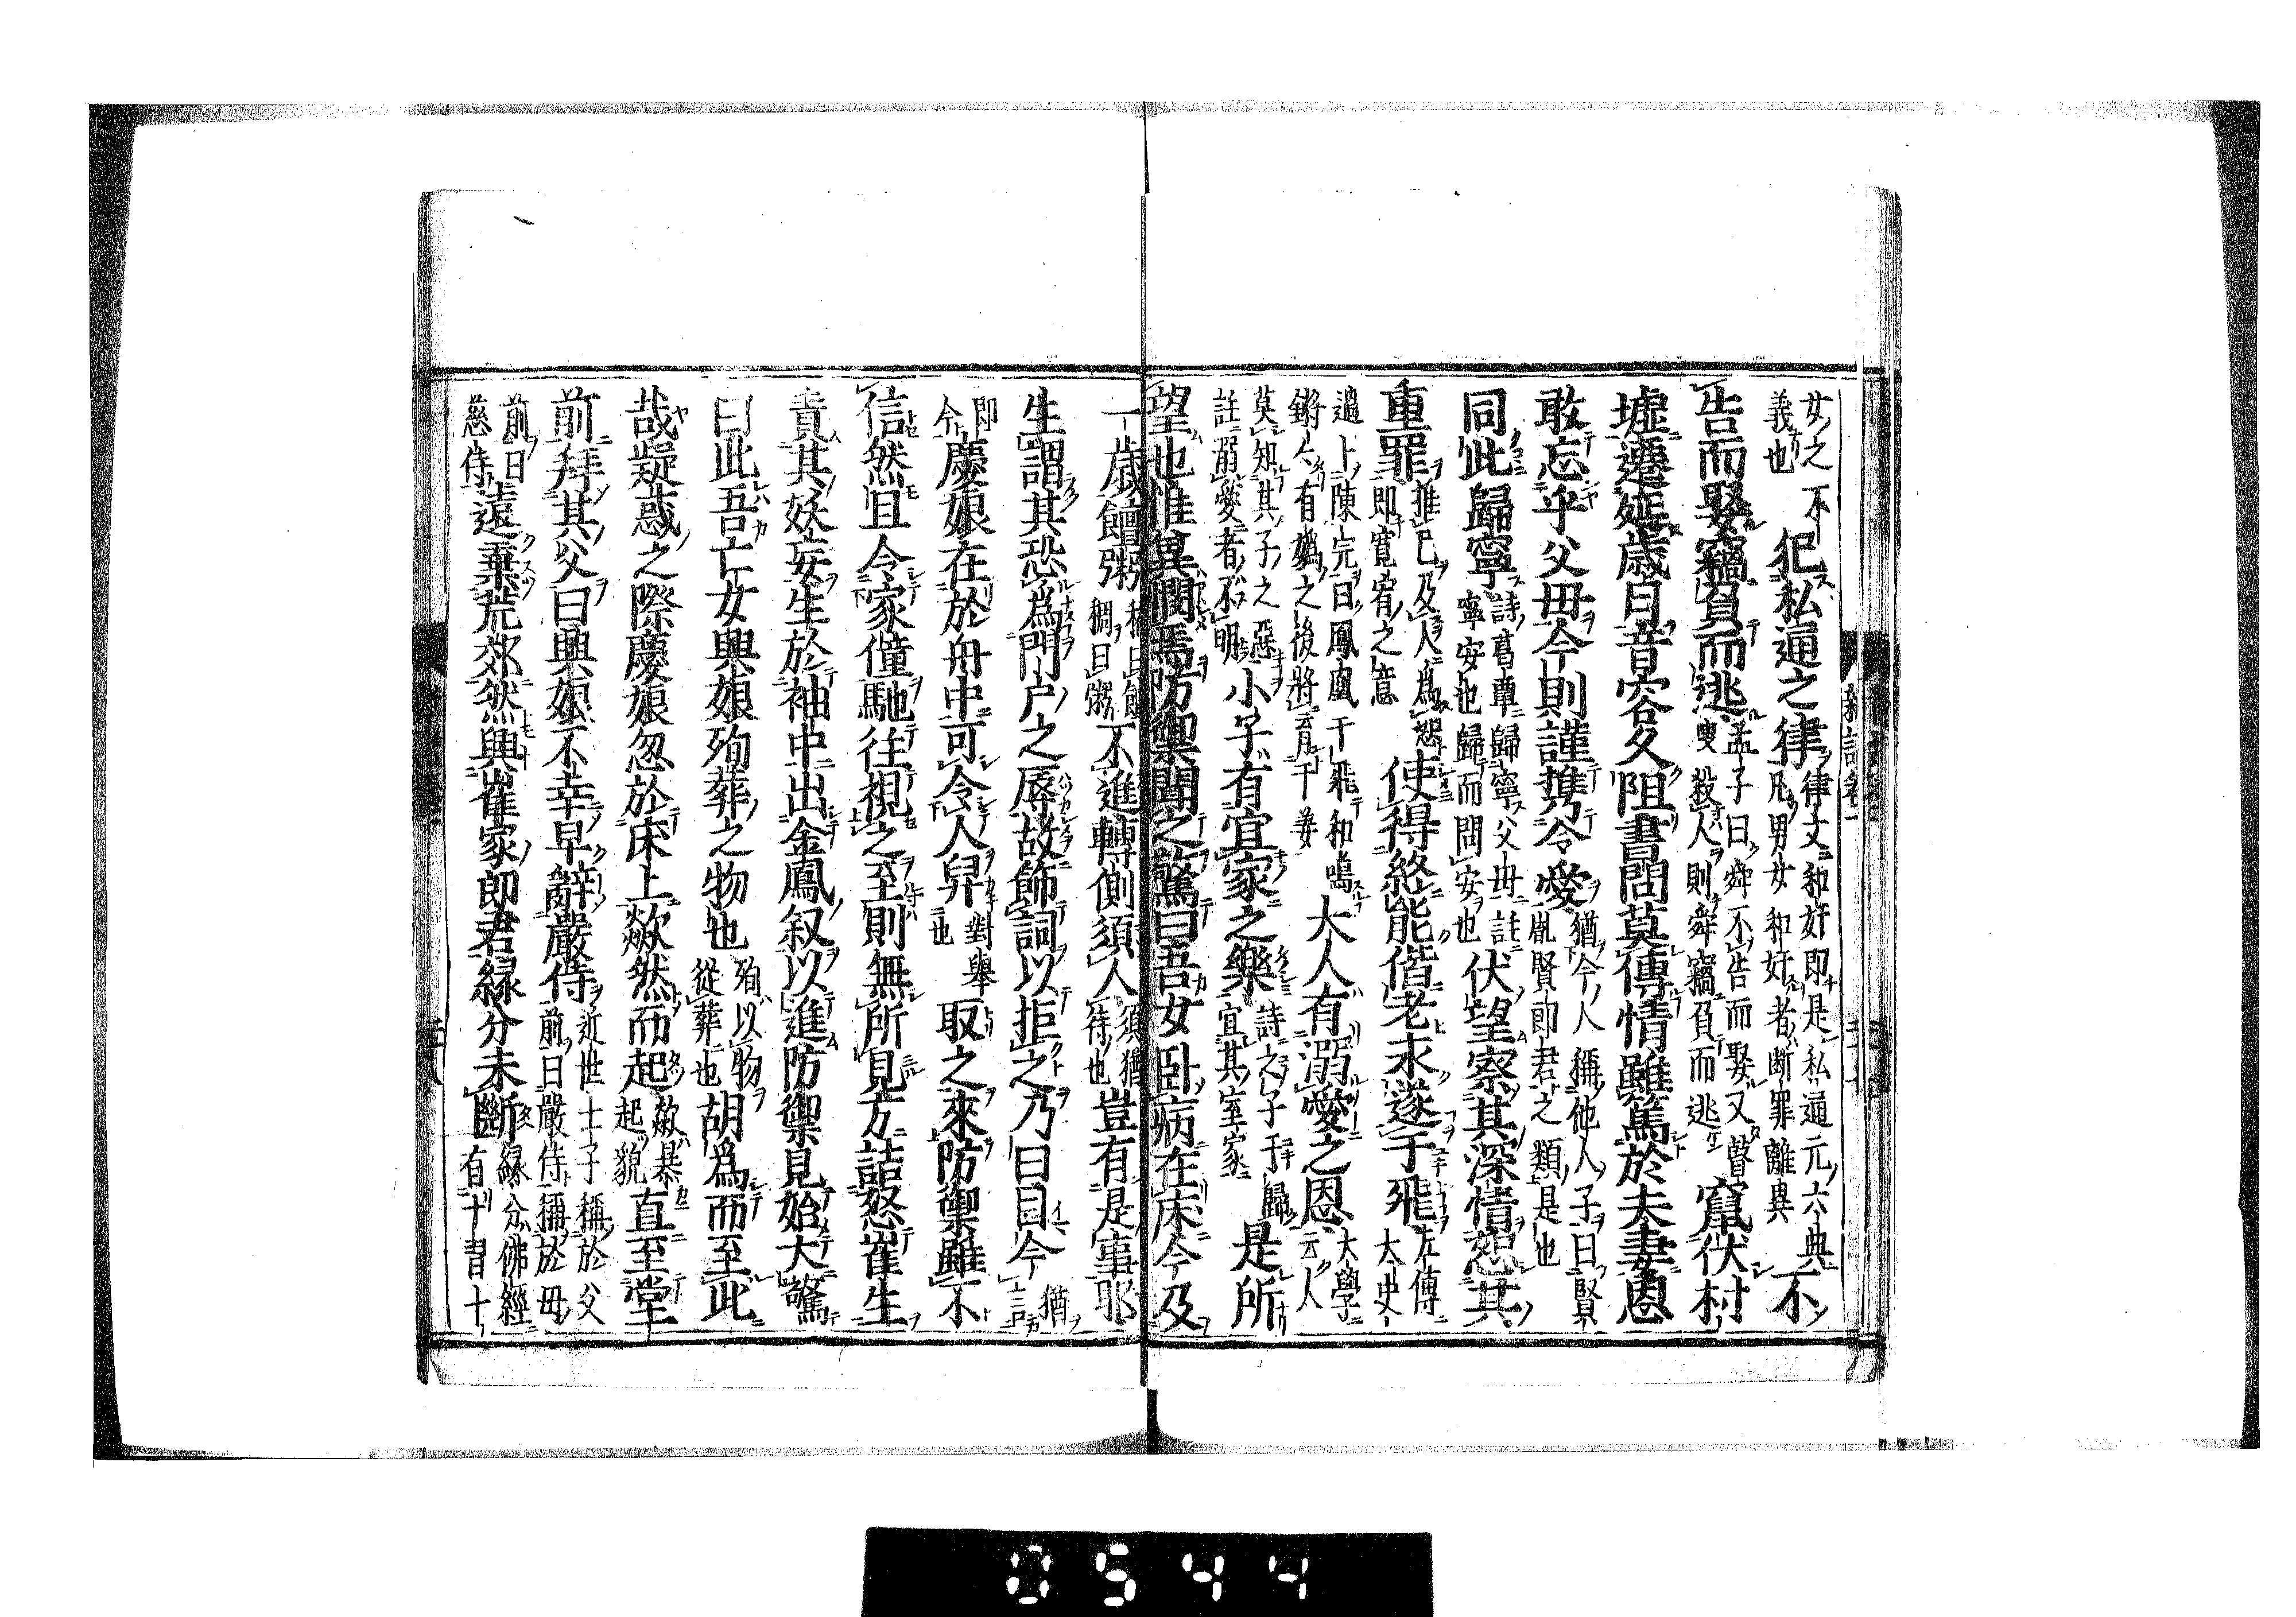 女之不犯私通之律律文和奸即是私通元六典不
義也凡男女和奸者断罪離異
告而娶竊負而逃孟子曰舜不告而娶又瞽瞍殺人則舜竊負而逃竄伏村
墟遷延歳月音容久阻書問莫傳情雖篤於夫妻恩
敢忘乎父母今則謹携令愛猶今人稱他人子曰賢胤賢郎君之類是也
同此歸寧詩葛覃歸寧父母註寧安也歸而問安也伏望察其深情恕其
重罪推己及人為恕即寛宥之意使得終能偕老永遂于飛左傳大史
過卜陳完曰鳳凰于飛和鳴鏘々有嬀之後將云育于姜大人有溺愛之恩大學云人
莫知其子之惡註溺愛者不明小子有宜家之樂詩之子于歸宜其室家是所
望也惟冀憫焉防禦聞之驚曰吾女卧病在床今及
一歳饘粥稠曰粥不進轉側須人須猶待也豈有是事耶
生謂其恐為門户之辱故飾詞以拒之乃曰目今猶言
即今慶娘在於舟中可令人舁對舉也取之來防禦雖不
信然且令家僮馳往視之至則無所見方詰怒崔生
責其妖妄生於袖中出金鳳釵以進防禦見始大驚
曰此吾亡女興娘殉葬之物也殉以物從葬也胡為而至此
哉疑惑之際慶娘忽於床上欻然而起欻暴起貌直至堂
前拜其父曰興娘不幸早辭嚴侍近世士子稱於父前曰嚴侍稱於母
前曰慈侍遠棄荒郊然與崔家郎君緣分未斷緣分佛經有十習十
新話卷一